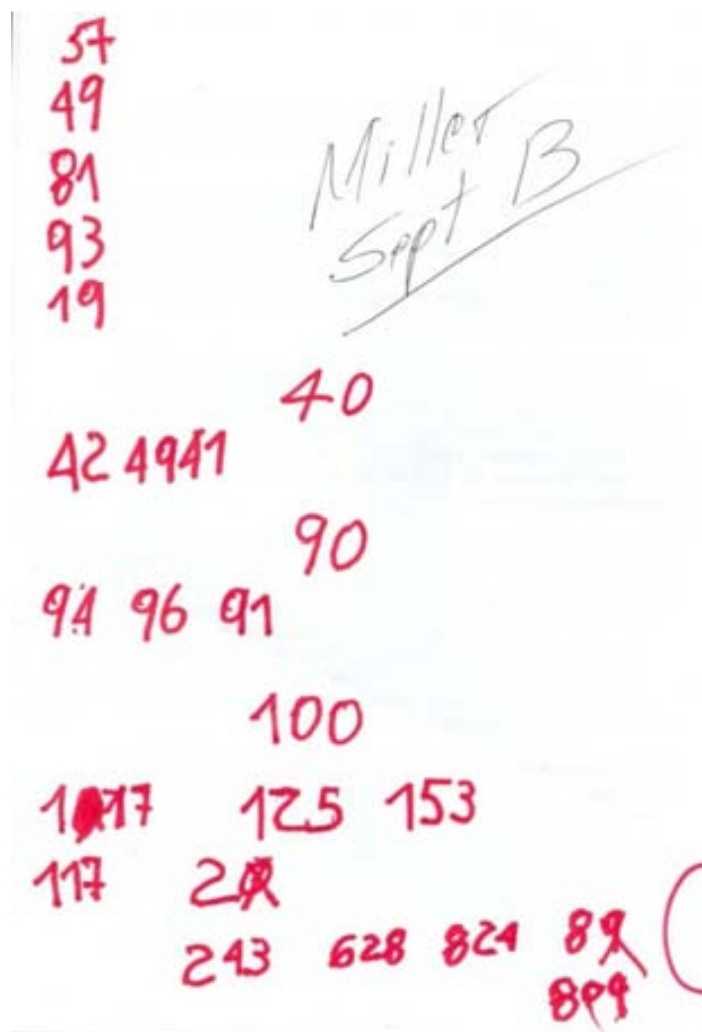 57
49
81
93
19
Miller
Sept B
40
42 49 41
90
94 96 91
100
117 125 153
117 2
243 628 824 8